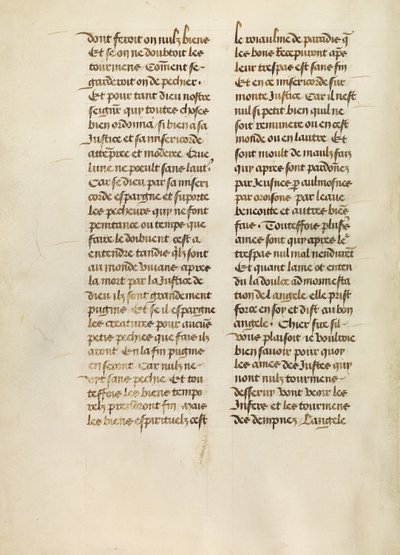 dont feroit on nulz biens
Et se on ne doubtoit les
tourmens Comẽt se
garderoit on de pechier
Et pour tant dieu nostre
seigñr qui toutes choses
bien ordonna si bien a sa
Justice et sa misericorde
attempree et moderee Que
lune ne poeult sans laut'
Car se dieu par sa miseri
corde espargne et suporte
les pecheurs qui ne font
penitance ou temps que
faire le doibuent cest a
entendre tandis qlz sont
au monde viuans apres
la mort par la Justice de
dieu ilz sont grandement
pugnis Et se il espargne
les creatures pour aucũs
petis pechies que fais ilz
aront En la fin pugnis
en seront Car nulz ne
vit sans pechie Et tou
teffois les biens tempo
relz prenderont fin Mais
les biens espirituelz cest
le roiaulme de paradis q̃
les bons recepuront apres
leur trespas est sans fin
Et en ce misericorde sur
monte Justice Car il nest
nul si petit bien quil ne
soit remunere ou en cest
monde ou en lautre Et
sont moult de maulz fais
qui apres sont pardonez
par Jeusnes par aulmosnes
par oroisons par leaue
benoitte et autres biẽs
fais Touteffois plusẽs
ames sont qui apres le
trespas nul mal nendurẽt
Et quant lame ot enten
du la doulce admonesta
tion de langele elle prist
force en soy et dist au bon
angele Chier sire sil
vous plaisoit ie vouldroie
bien sauoir pour quoy
les ames des Justes qui
nont nulz tourmens
desseruy vont veoir les
Infers et les tourmens
des dempnez Langele